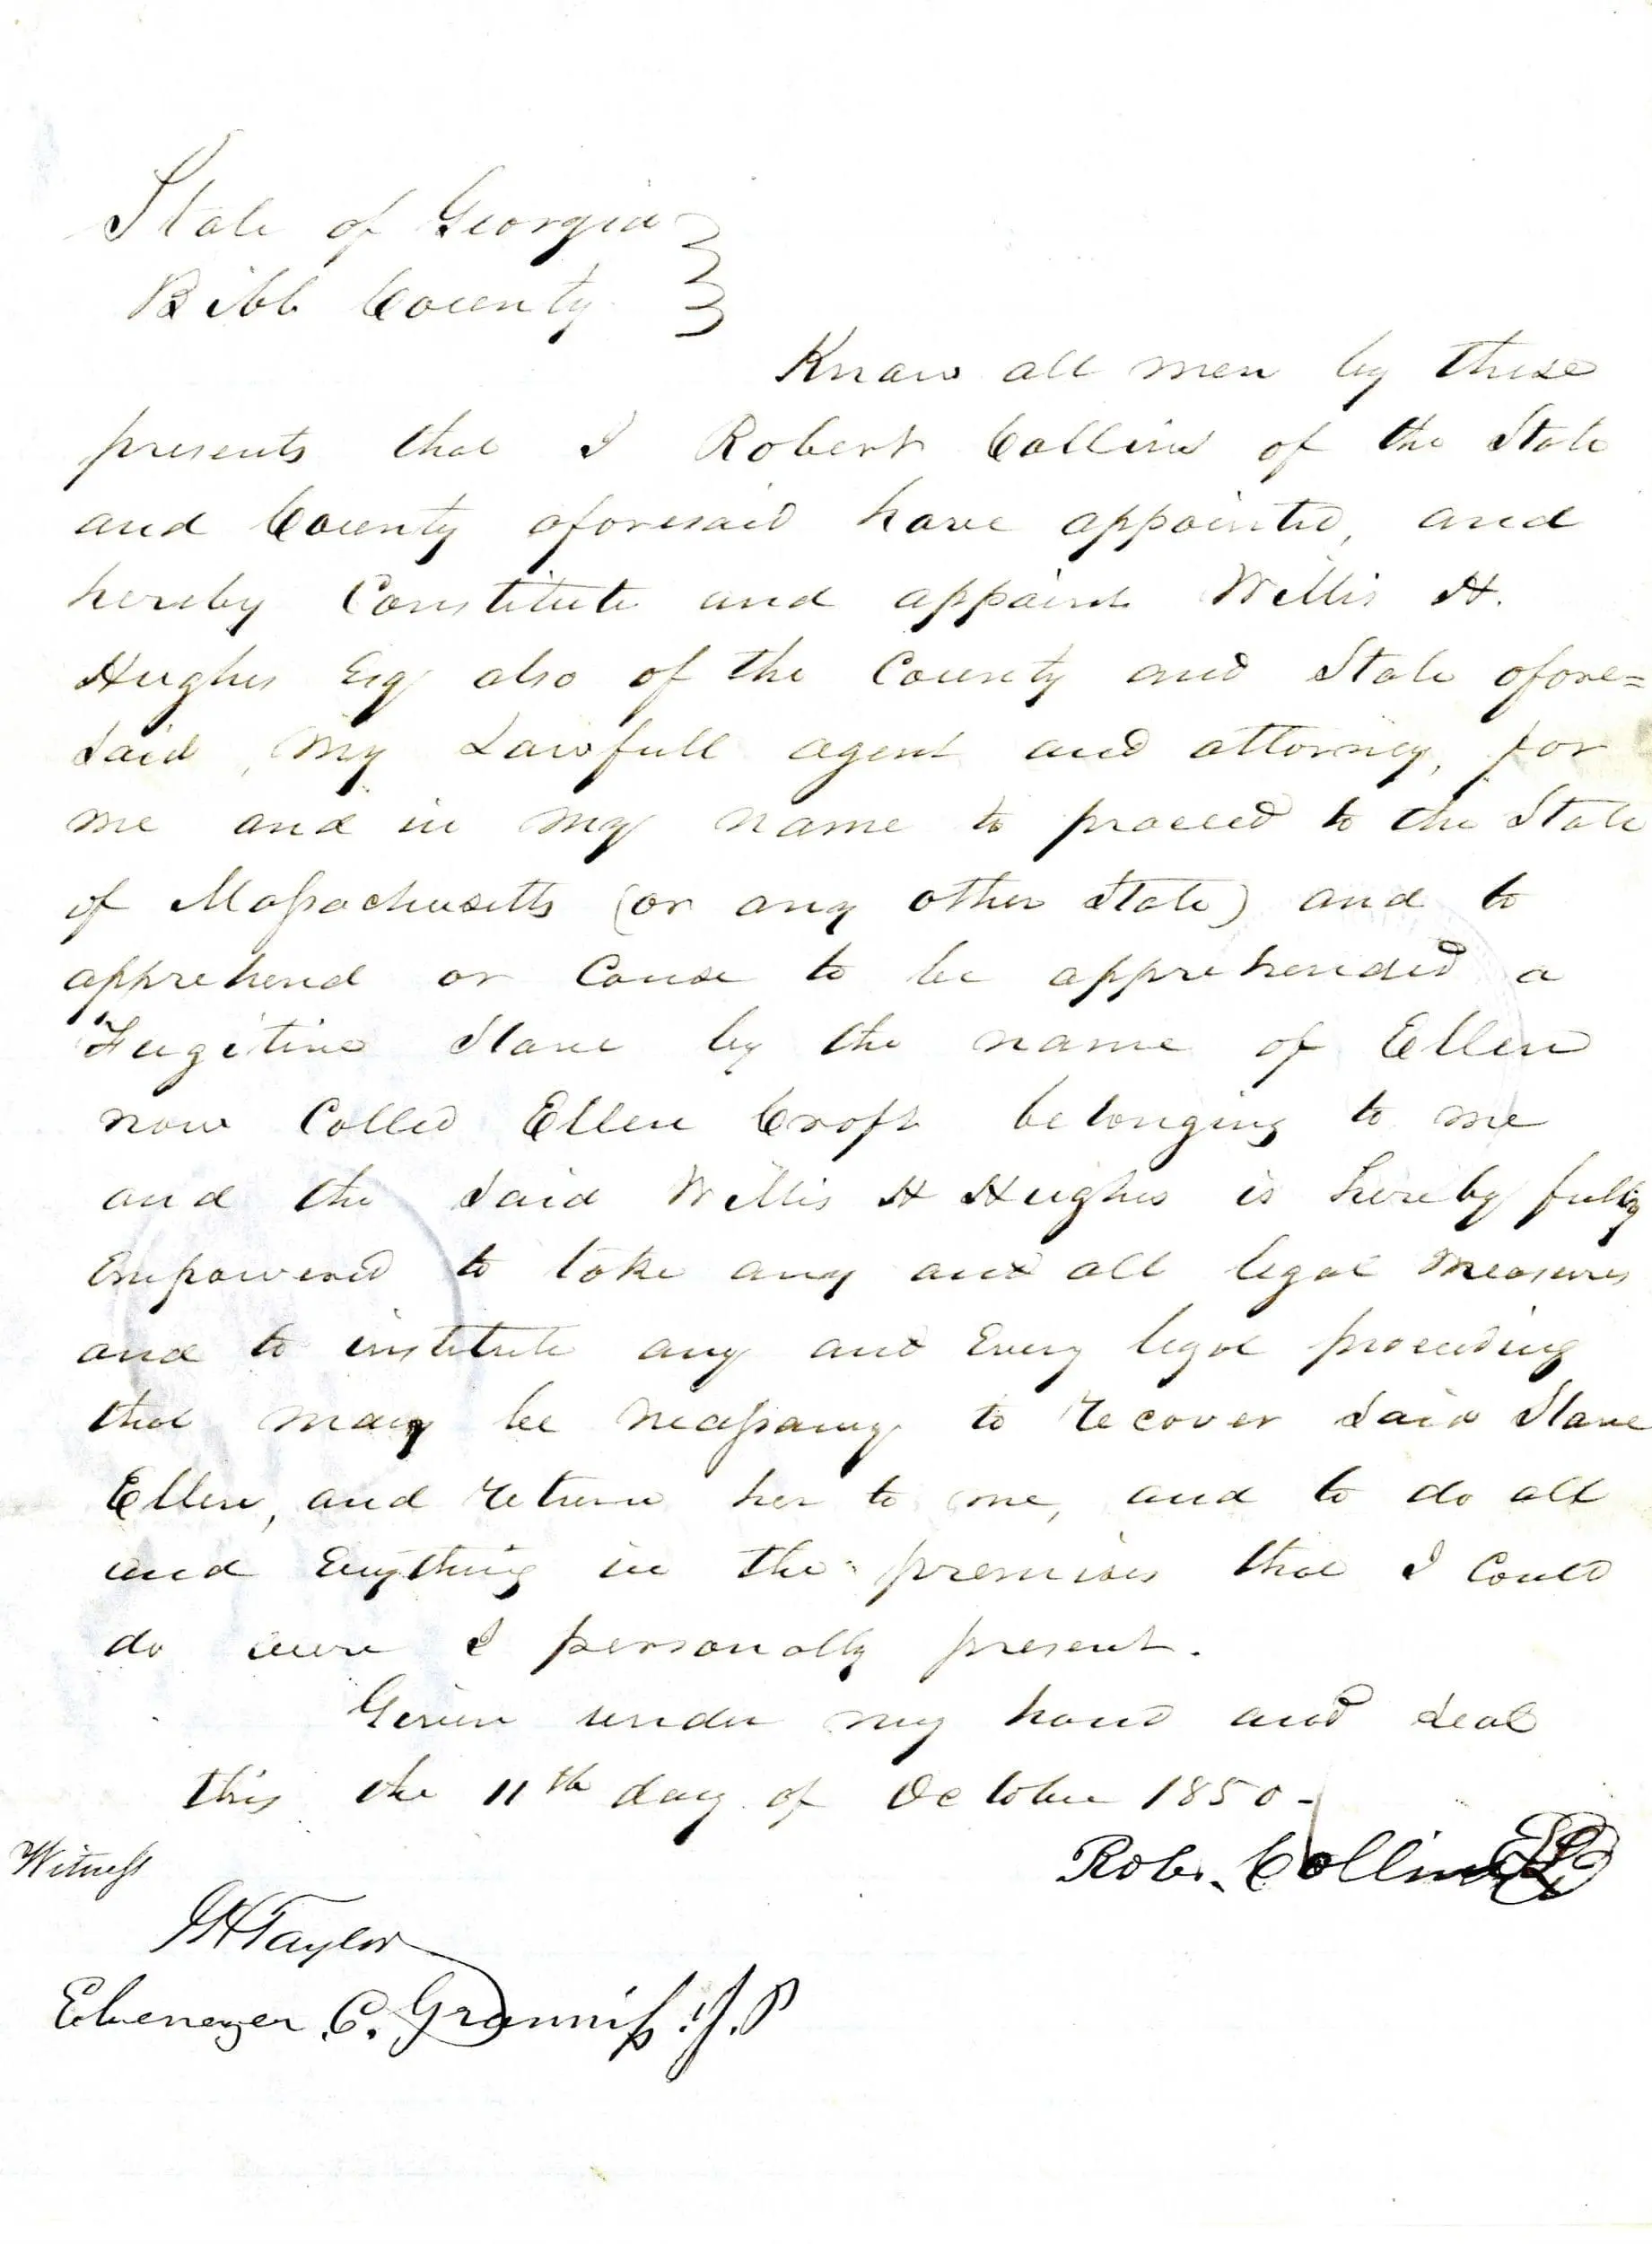 State of Georgia
Bibb County
Know all men by these
presents that I Robert Collins of the State
and County aforesaid have appointed, and
hereby Constitute and appoint Willis H.
Hughes Esq also of the County and State afore=
said, my Lawfull agent and attorney, for
me and in my name to proceed to the State
of Massachusetts (or any other State) and to
apprehend or Cause to be apprehended a
Fugitive Slave by the name of Ellen
now Called Ellen Croft belonging to me
and the said Willis H Hughes is hereby fully
Empowered to take any and all legal measures
and to institute any and Every legal proceeding
that may be necessary to recover said Slave
Ellen, and return her to me, and to do all
and Evrything in the premises that I Could
do were I personally present.
Given under my hand and seal
this the 11th day of October 1850-
Robt. Collins
Witness
Taylor
Ebenezer C. Granniss J.P